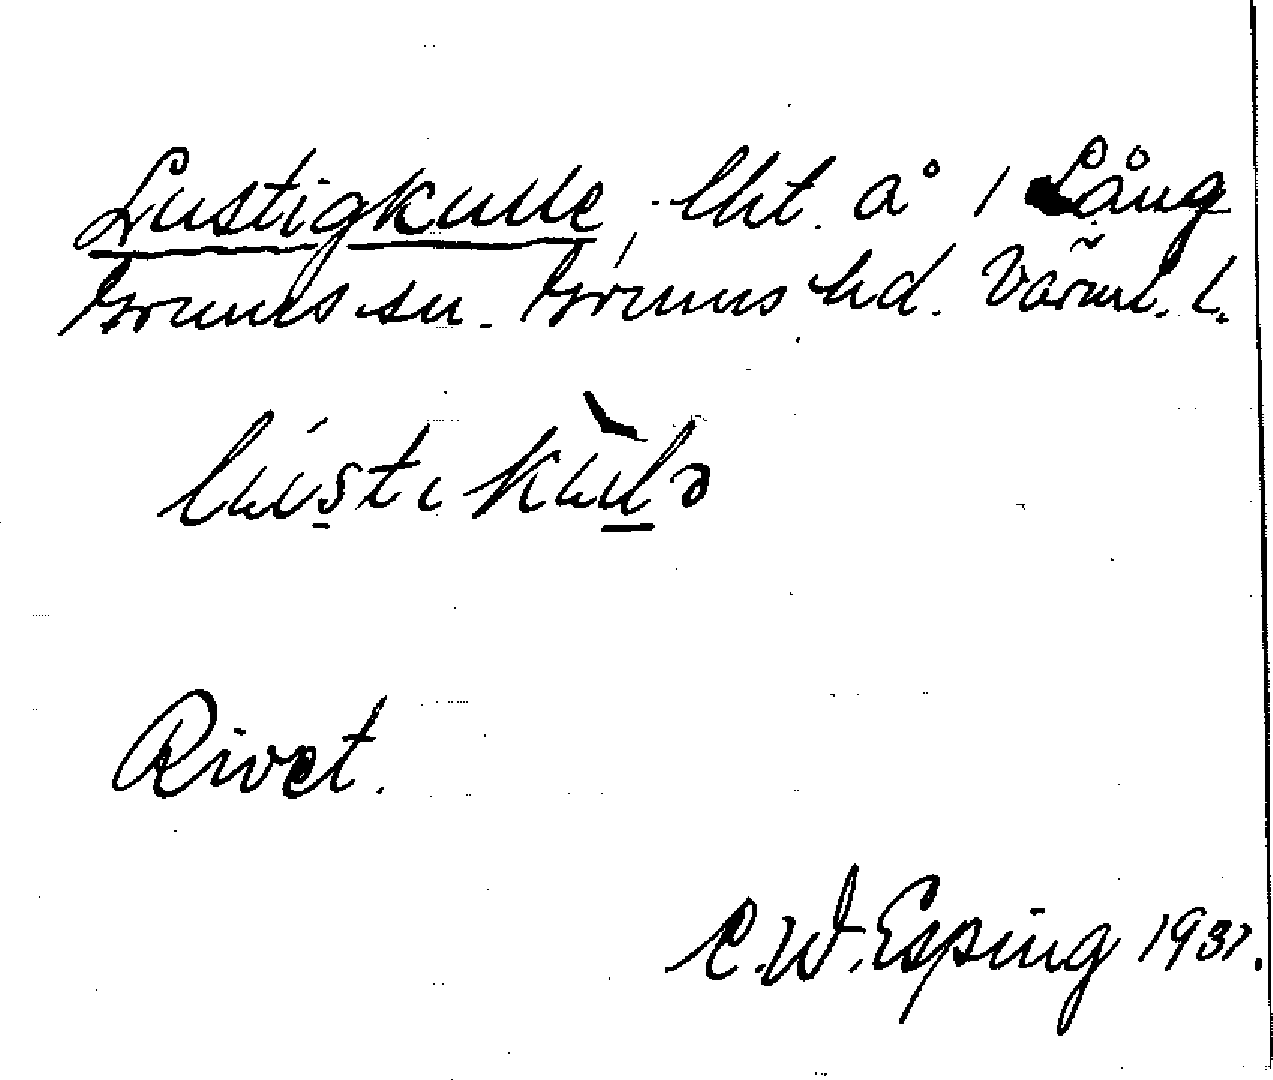 Lustigkulle, lht. å 1 Lång
Grums sn. Grums hd. Värml. l.
Rivet.
C. W. Esping 1937.